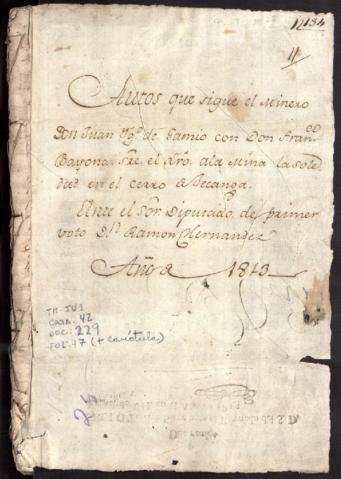 11134
11
Autos que sigue el Minero
Don Juan Ygº. de Gamio con Don Franco
Bayona, sre. el dro. ala Mina la Sole
dad en el cerro de
Ante el Sor. Diputado de primer
voto Dn. Ramon Hernandez
Año de 1813
TM-JU1
CAJA: 42
DOC: 229
FOL: 77 (+ carátula)